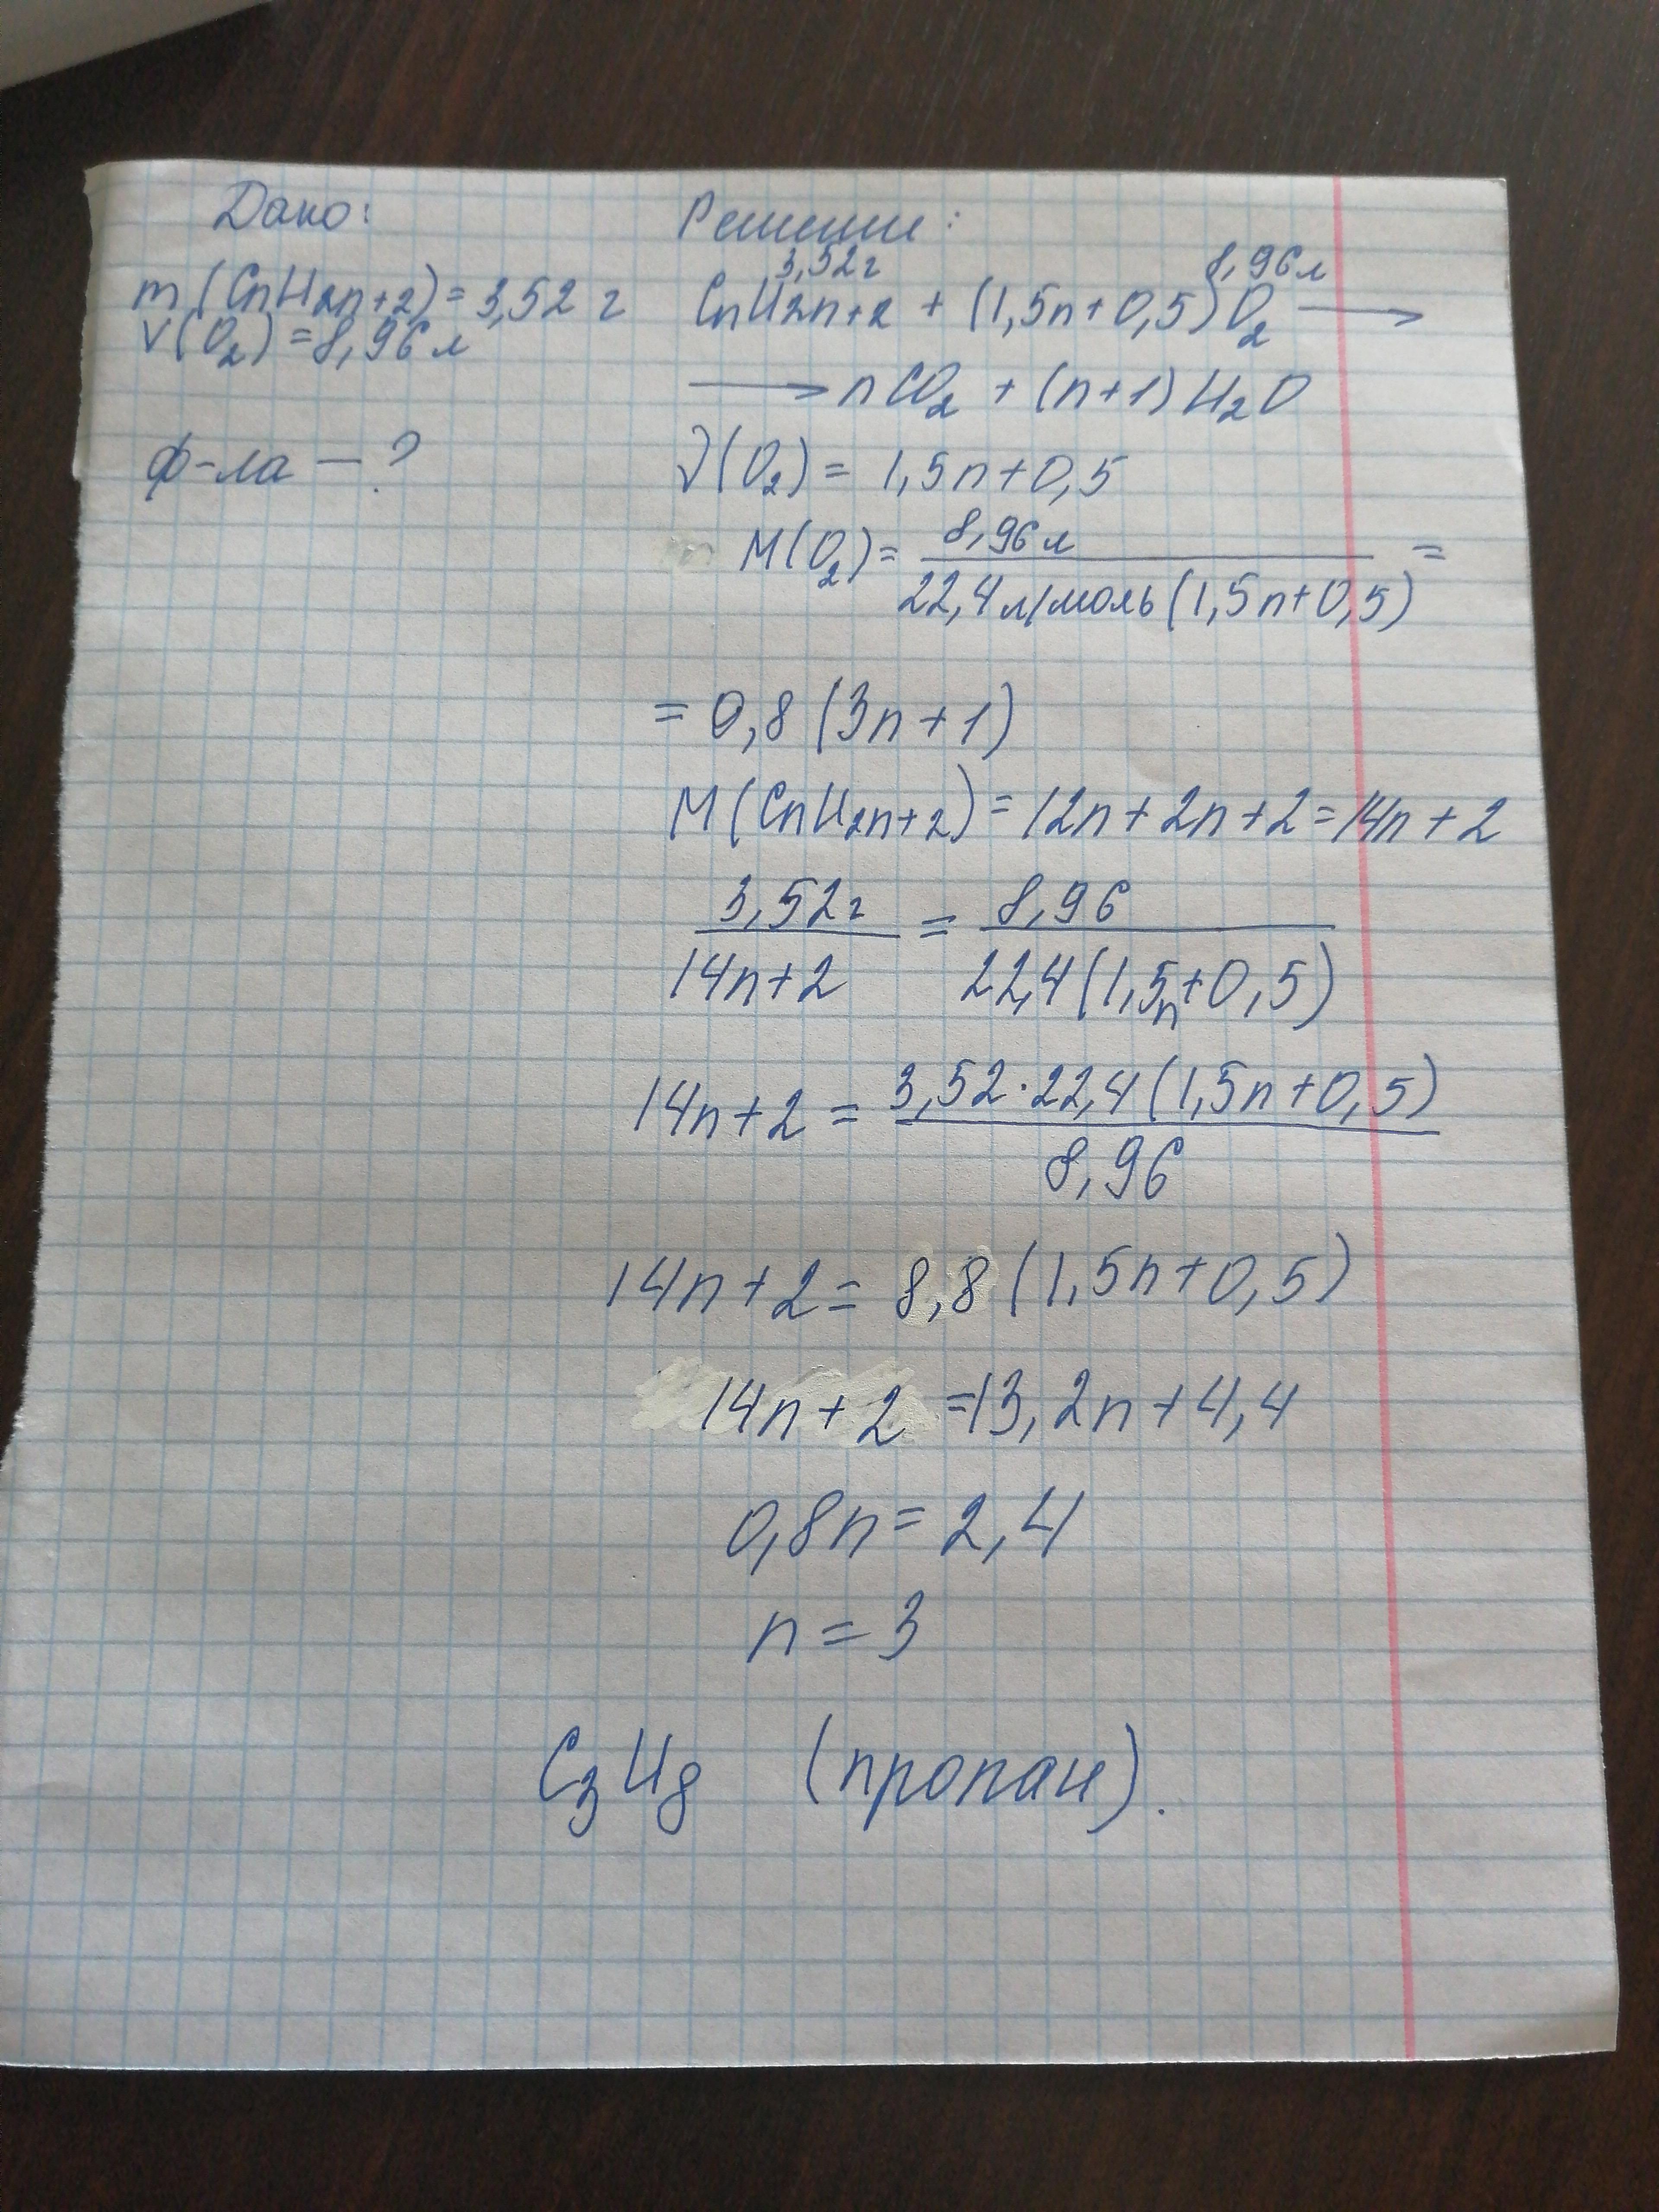 Дано:
m(CnH2n+2)=3,52 г
V(O2)=8,96 л
ф-ла — ?
Решение:
3,52г 8,96л
CnH2n+2 + (1,5n+0,5)O2 ⟶
⟶ nCO2 + (n+1)H2O
ν(O2)= 1,5n+0,5
M(O2)= 8,96 л / 22,4 л/моль (1,5n+0,5) =
= 0,8(3n+1)
M(CnH2n+2)=12n+2n+2=14n+2
3,52г / 14n+2 = 8,96 / 22,4(1,5n+0,5)
14n+2= 3,52·22,4(1,5n+0,5) / 8,96
14n+2= 8,8(1,5n+0,5)
14n+2=13,2n+4,4
0,8n=2,4
n=3
C3H8 (пропан).